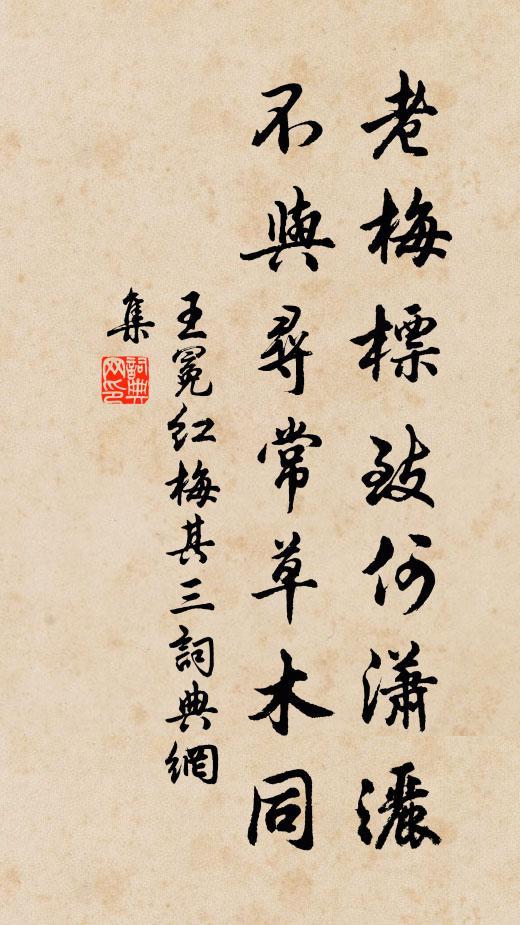 老梅標致何瀟灑
不與尋常草木同
王冕紅梅其三詞典網
集
詞典
网印